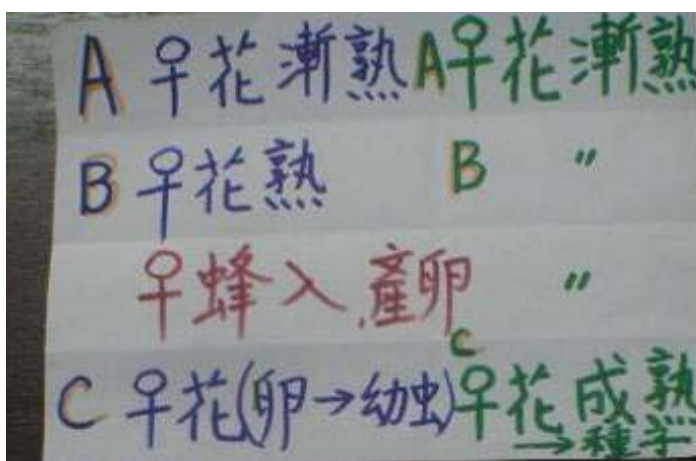 A ♀花漸熟 A♀花漸熟
B ♀花熟 B 〃
♀蜂入,產卵 〃
C ♀花(卵→幼虫) C ♀花成熟
→種子